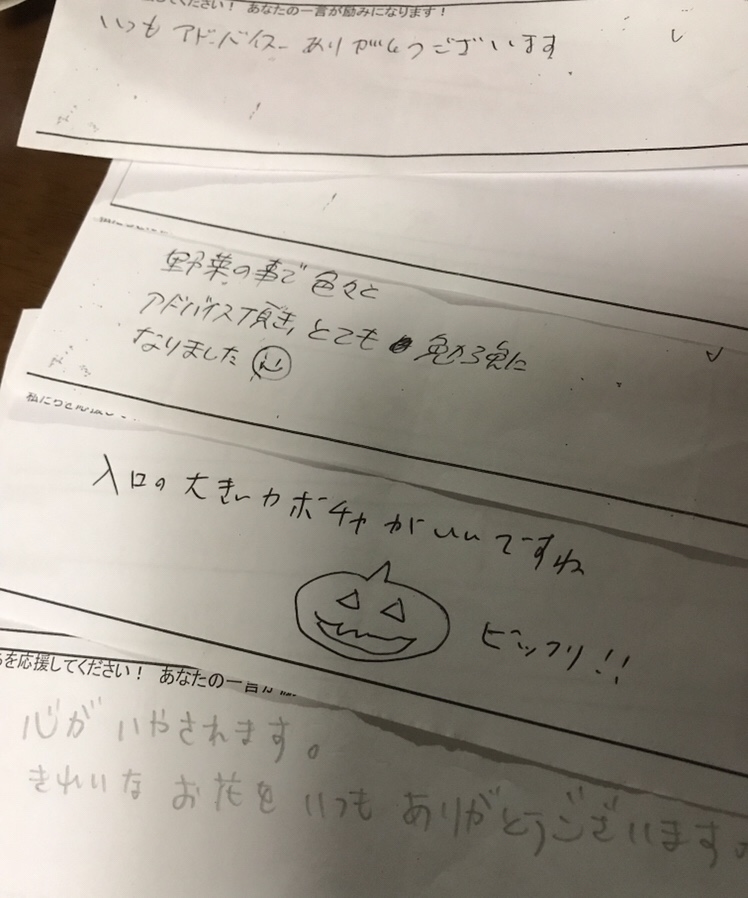 ください！ あなたの一言が励みになります！
いつも アドバイス ありがとうございます
野菜の事で色々と
アドバイス頂き、とても 勉強に
なりました
私に
入口の大きいカボチャがいいですね
ビックリ!!
を応援してください！ あなたの一言が
心がいやされます。
きれいな お花を いつも ありがとうございます。